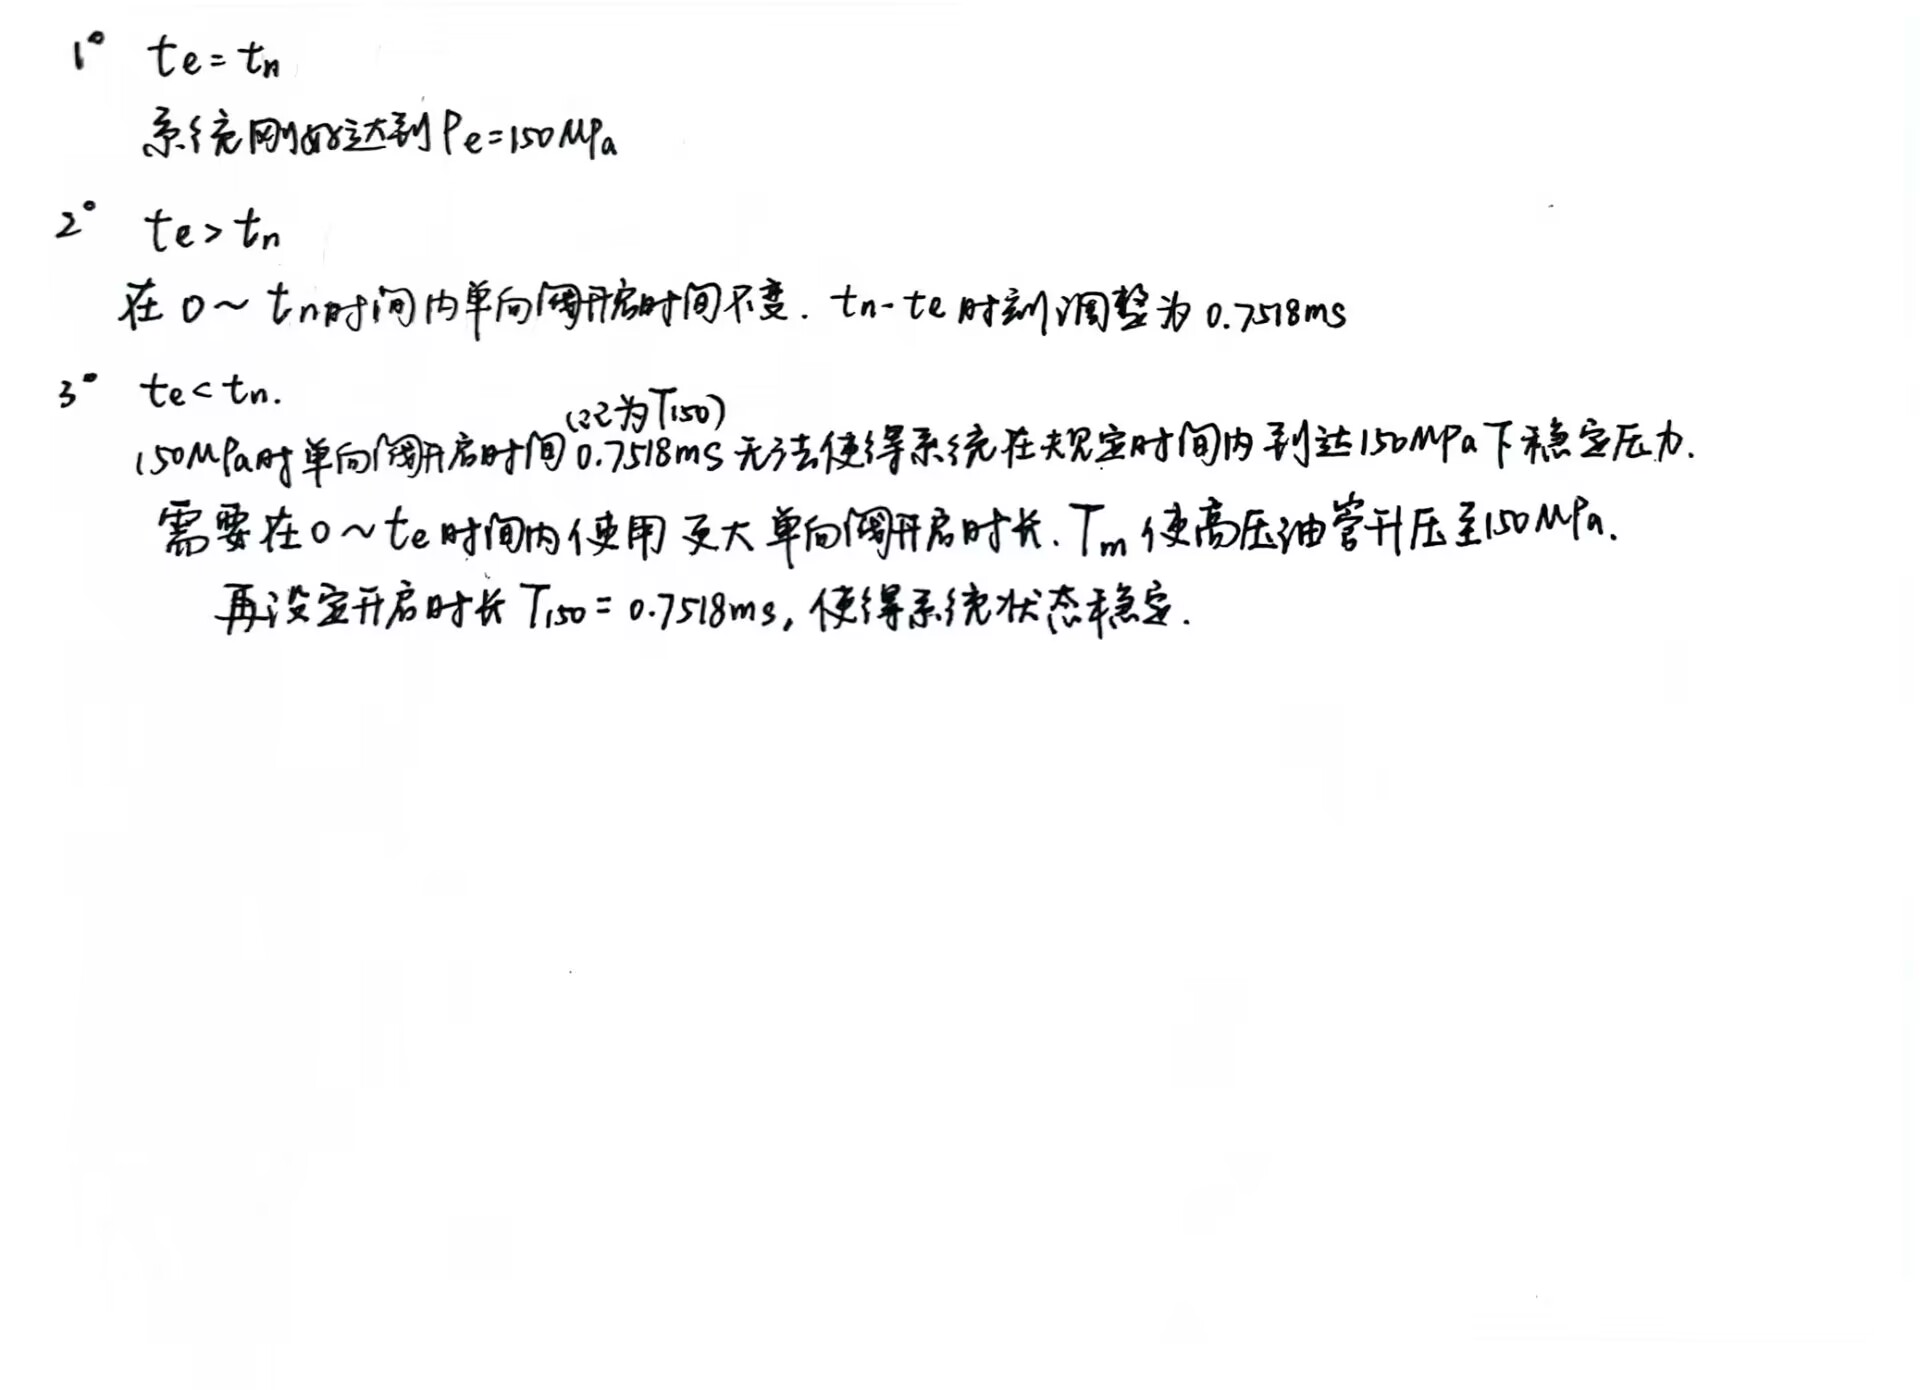 1° te = tn
系统刚好达到Pe=150MPa
2° te > tn
在 0～tn时间内单向阀开启时间不变. tn-te 时刻调整为 0.7518ms
3° te < tn.
(记为T150)
150MPa时单向阀开启时间 0.7518ms 无法使得系统在规定时间内到达150MPa下稳定压力.
需要在0～te时间内使用更大单向阀开启时长. Tm 使高压油管升压至150MPa.
再设定开启时长 T150 = 0.7518ms, 使得系统状态稳定.